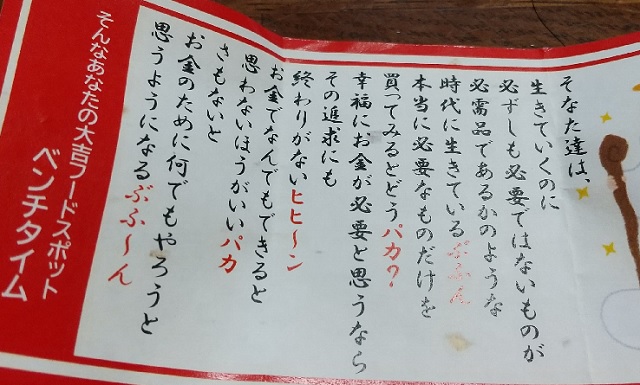 そなた達は、
生きていくのに
必ずしも必要ではないものが
必需品であるかのような
時代に生きているぶふ~ん
本当に必要なものだけを
買ってみるとどうパカ？
幸福にお金が必要と思うなら
その追求にも
終わりがないヒヒ~ン
お金でなんでもできると
思わないほうがいいパカ
さもないと
お金のために何でもやろうと
思うようになるぶふ~ん
そんなあなたの大吉フードスポット
ベンチタイム